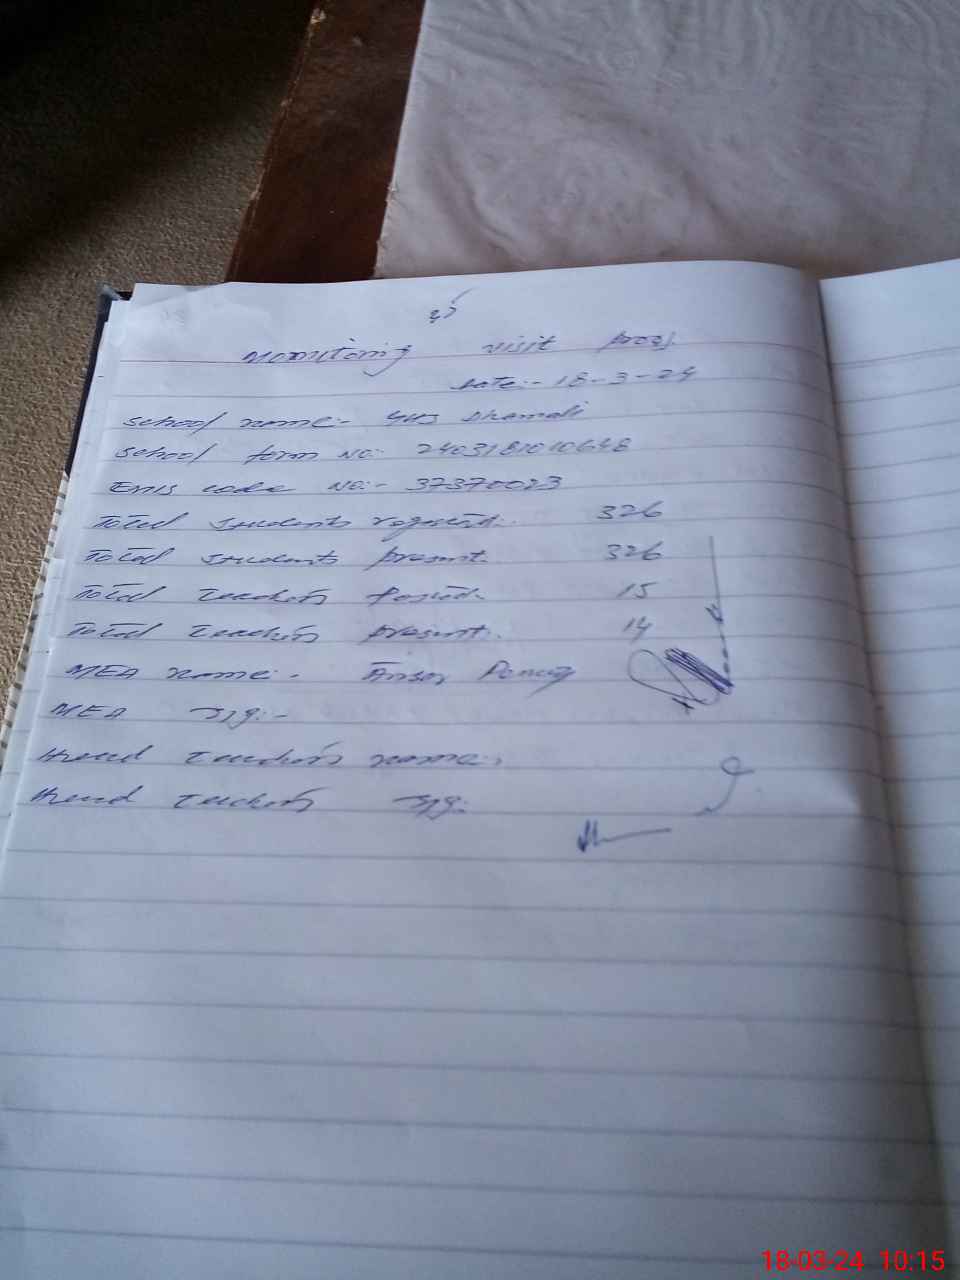 Monitoring visit prog
Date:- 18-3-24
School name:- GHS Dhamali
School form No:- 2403181010648
Emis code No:- 37370023
Total Students registed. 326
Total Students present. 326
Total Teachers Posted. 15
Total Teachers present. 14
MEA name:- Ansar
MEA Sig:-
Head Teachers name:
Head Teachers Sig:
18-03-24 10:15